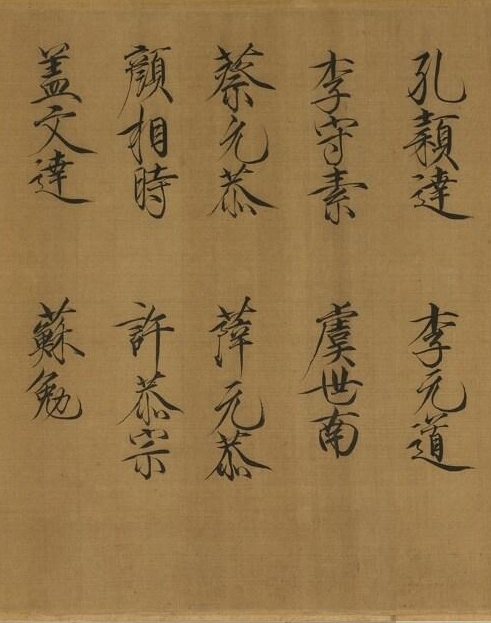 孔穎達 李元道
李守素 虞世南
蔡元恭 薛元恭
顏相時 許恭宗
蓋文達 蘇勉